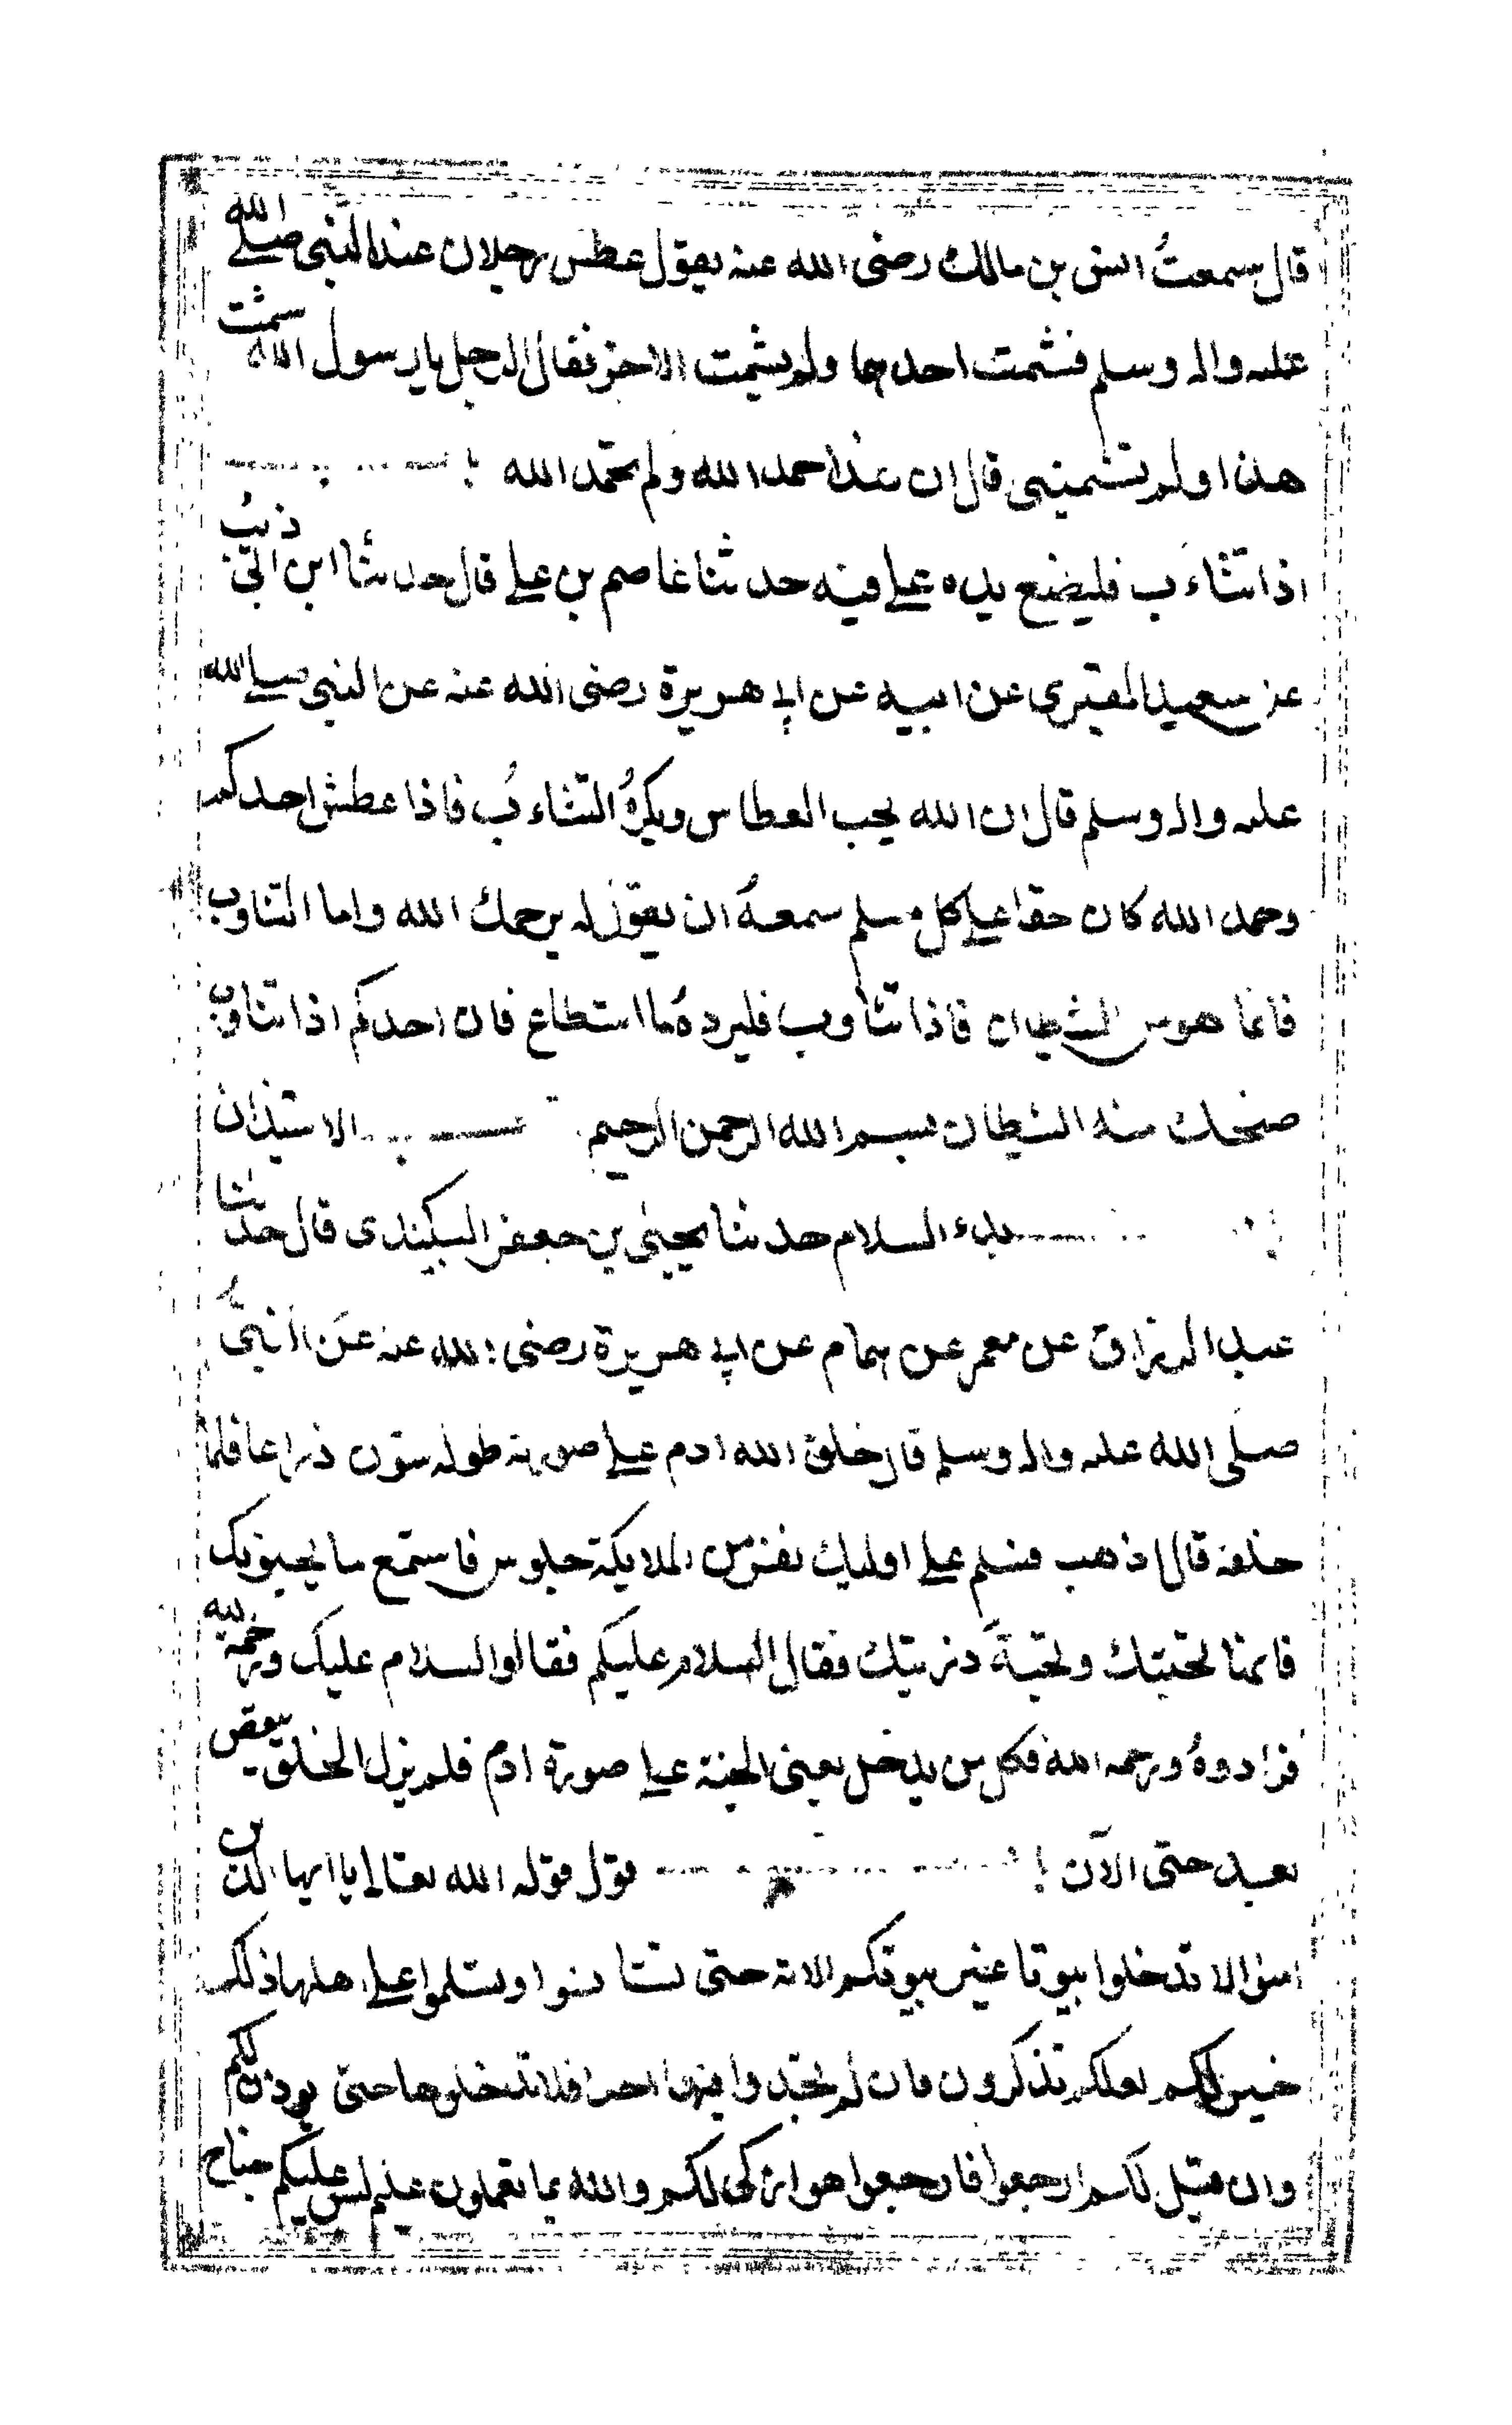 قال سمعتُ انس بن مالك رضى الله عنه يقول عطس رجلان عند النبى صلى الله
عليه واله وسلم فشمت احدهما ولم يشمت الاخر فقال الرجل يا رسول الله شمت
هذا ولم تشمتنى قال ان هذا حمد الله ولم تحمد الله
اذا تثاءب فليضع يده على فيه حدثنا عاصم بن على قال حدثنا ابن ابى ذئب
عن سعيد المقبرى عن ابيه عن ابى هريرة رضى الله عنه عن النبى صلى الله
عليه واله وسلم قال ان الله يحب العطاس ويكرهُ التثاءُب فاذا عطس احدكم
وحمد الله كان حقا على كل مسلم سمعهُ ان يقول له يرحمك الله واما التثاوب
فانما هو من الشيطان فاذا تثاوب فليردهُ ما استطاع فان احدكم اذا تثاوب
ضحك منه الشيطان بسم الله الرحمن الرحيم الاستيذان
بدء السلام حدثنا يحيى بن جعفر البيكندى قال حدثنا
عبد الرزاق عن معمر عن همام عن ابى هريرة رضى الله عنه عن النبى
صلى الله عليه واله وسلم قال خلق الله ادم على صورته طوله ستون ذراعا فلما
خلقه قال اذهب فسلم على اوليك نفر من الملايكة جلوس فاستمع ما يحيونك
فانها تحيتك وتحية ذريتك فقال السلام عليكم فقالوا السلام عليك ورحمة الله
فزادوهُ ورحمه الله فكل من يدخل يعنى الجنة على صورة ادم فلم يزل الخلق ينقص
بعد حتى الآن قول قوله الله تعالى يا ايها الذين
امنوا لا تدخلوا بيوتا غير بيوتكم الاية حتى تستانسوا وتسلموا على اهلها ذلكم
خير لكم لعلكم تذكرون فان لم تجدوا فيها احدا فلا تدخلوها حتى يوذن لكم
وان قيل لكم ارجعوا فارجعوا هو ازكى لكم والله بما تعملون عليم ليس عليكم جناح